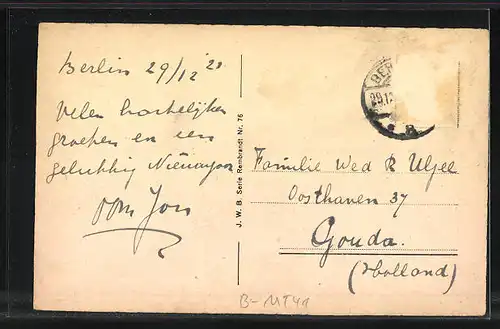 Berlin 29/12 21
Velen hartelijken
groeten en een
gelukkig Nieuwjaar
Oom Jon
J. W. B. Serie Rembrandt Nr. 76
BER
29.12
Familie Wed R Uljee
Oosthaven 37
Gouda.
(Holland)